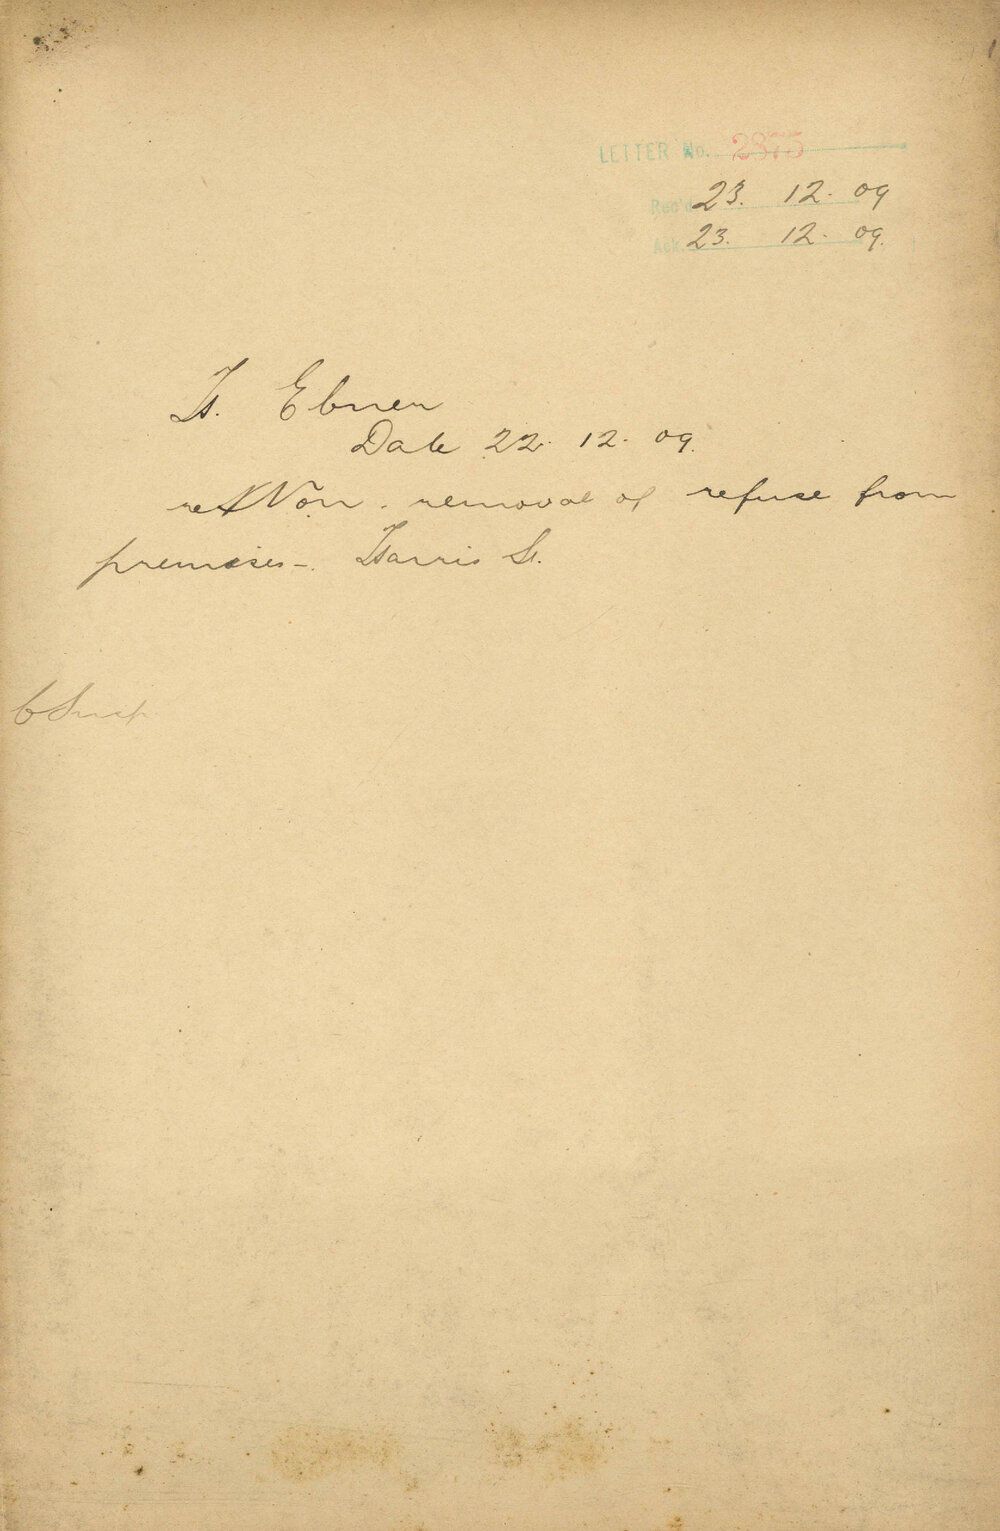 LETTER No. 2875
Rec'd 23. 12. 09
Ack. 23. 12. 09.
H. Ebner
Date 22. 12. 09.
re Non. removal of refuse from
premises -. Harris St.
C Insp